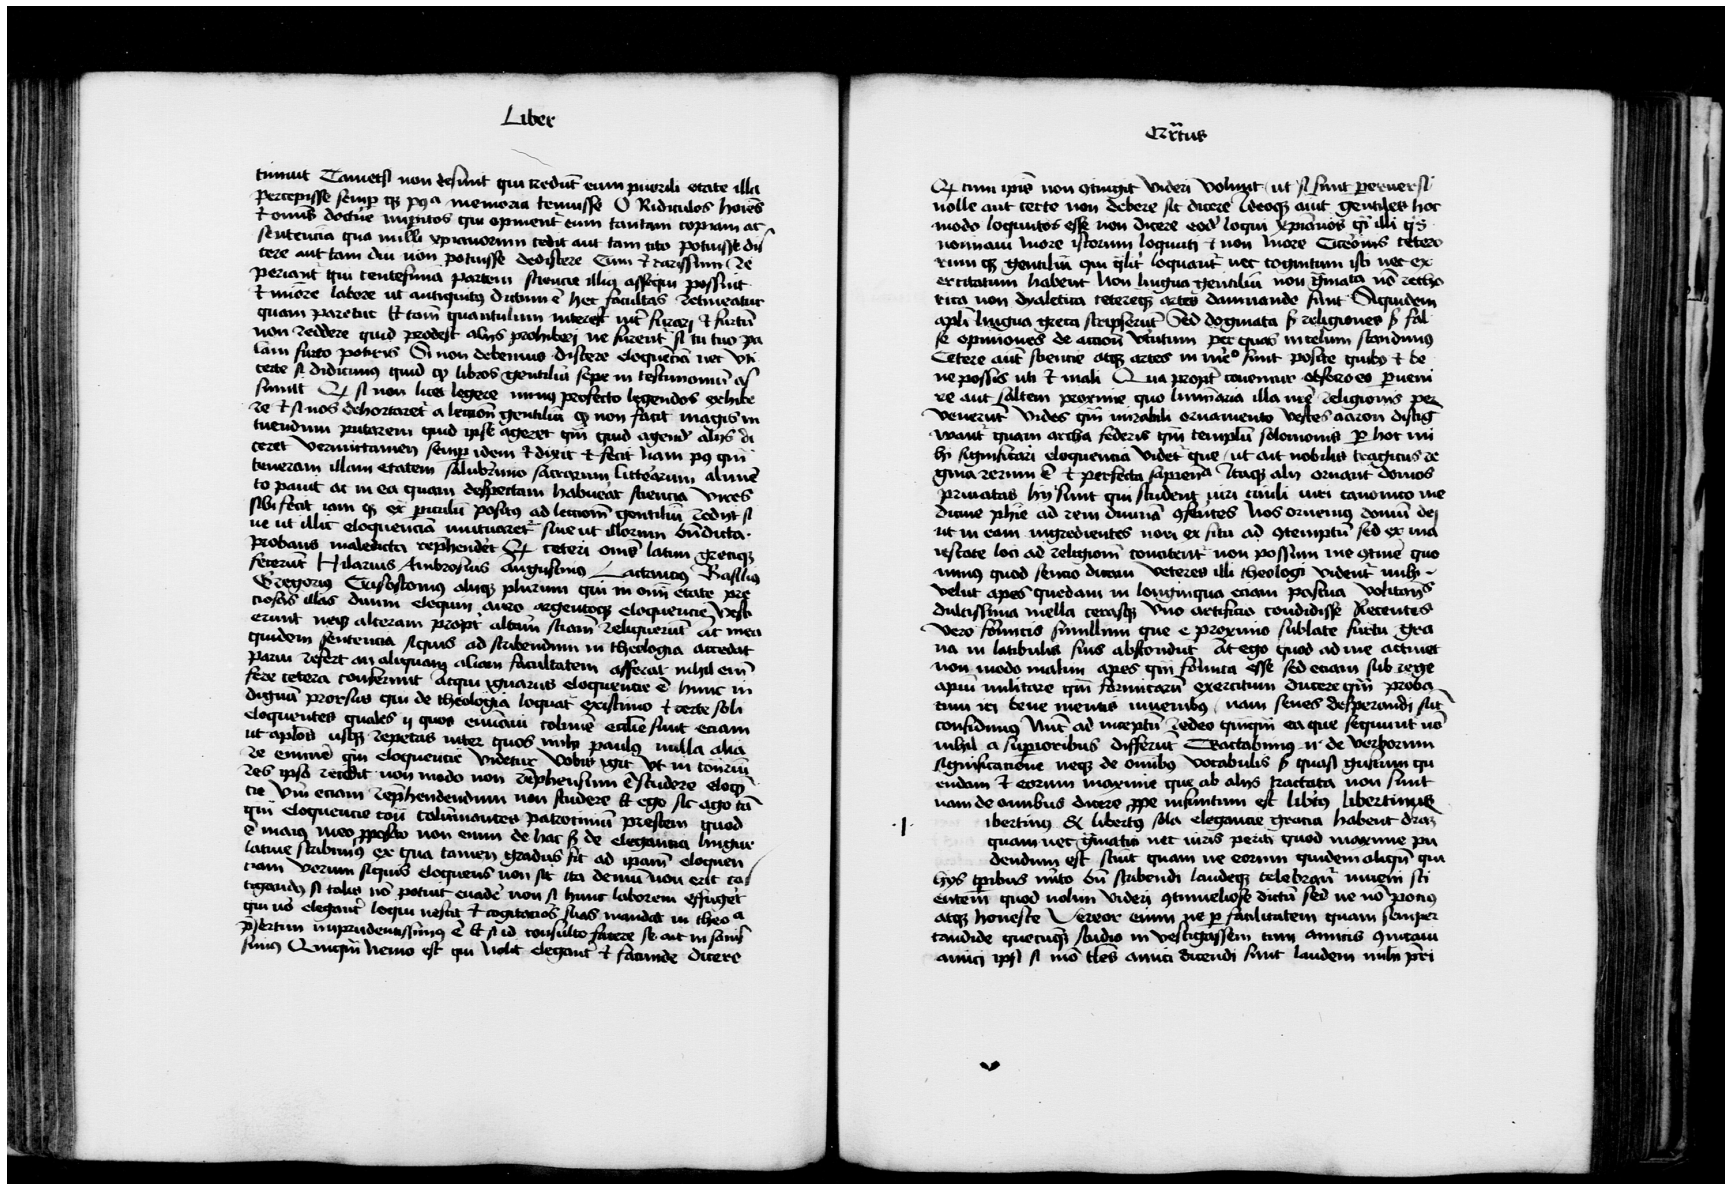 Liber
timuit Tametsi non desunt qui credūt eum puerili etate illa
percepisse semp qꝫ postea memoria tenuisse O Ridiculos hoīes
& omīs doctrīe imperitos qui opinent eum tantam copiam ac
sentencia qua nulli xpianorum cedit aut tam cito potuisse dis
cere aut tam diu non potuisse dediscere Cum & rarissimi re
periant qui centesimā partem sciencie illius assequi possint
& minore labore ut antiquitus dictum ē hec facultas retineatur
quam paretur Et tam quantulum interest int furari & furtū
non reddere quid prodest alijs prohiberi ne furent si tu tuo pa
lam furto potiris Si non debemus discere eloquēciā nec uti
certe si didicimus quid quod libros gentiliū sepe in testimoniū as
sumit Qd si non licet legere minus profecto legendos exhibe
re & si nos dehortaret a lection gentiliū quod non facit magis in
tuendum putarem quid ipse ageret qm quid agend alijs di
ceret Verumtamen semp idem & dixit & fecit nam postqm
teneram illam etatem saluberrimo sacrarum litterarum alimē
to pauit ac in ea quam despectam habuerat sciencia vires
sibi fecit iam qꝫ ex periculū positus ad lectionē gentiliū redijt si
ue ut illic eloquenciam mutuaret siue ut illorum bn̄dicta
probans maledicta rephenderet Qd ceteri omēs latini greciqꝫ
fecerunt Hilarius Ambrosius Augustinus Lactancius Basilius
Gregorius Crisostomus aliiqꝫ plurimi qui in omī etate pre
ciosas illas diuini eloquii auro argentoqꝫ eloquencie vesti
erunt neqꝫ alteram propt alteram sciam reliquerūt At mea
quidem sentencia siquis ad scribendum in theologia accedat
parui refert an aliquam aliam facultatem afferat nihil eni
fere cetera conferunt Atqui ignarus eloquencie ē hunc in
dignū prorsus qui de theologia loquat existimo & certe soli
eloquentes quales ij quos enumeraui columē ecclie sunt eciam
ut aplos usqꝫ repetas inter quos mihi paulus nulla alia
re eminē qm eloquencie videtur Vobis igit ut in contrariū
res ipsa recedit non modo non rephensum ē studere eloqꝫ
cie Verū eciam rephendendum non studere Et ego sic ago tā
qm eloquencie contra calumniantes patrociniū prestem quod
ē maius meo pposito non enim de hac sꝫ de elegantia lingue
latine scribimus ex qua tamen gradus fit ad ipsam eloquen
ciam Verum siquis eloquens non sit ita demū non erit ca
tigandus si talis nō potuit euadē non si hunc laborem effuget
qui uero elegant loqui nescit & cogitacōes suas mandat in theoa
psertim imprudentissimus ē Et si id consulto facere se ait insanis
simus Quāqm nemo est qui nolit elegant & facunde dicere
Qrtus
Qd cum ipis non contingit videri volunt ut si sunt peruersi
nolle aut certe non debere sic dicere Ideoqꝫ aiunt gentiles hoc
modo loquutos esse non dicere eod loqui xpianos qi illi qs
nominaui more istorum loquuti & non more Ciceronis cetero
rum qꝫ gentiliū qui qlit loquant nec cognitum isti nec ex
ercitatum habent Non lingua gentiliū non gmatica nō retho
rica non dyaletica ceterqꝫ artes damnande sunt Siquidem
apli lingua greca scripserūt Sed dogmata sꝫ religiones sꝫ fal
se opiniones de accion virtutum per quas in celum scandimus
Cetere aut sciencie atqꝫ artes in medio sunt posite quibus & be
ne possis uti & mali Qua propt conemur obsecro eo perueni
re aut saltem proxime quo luminaria illa nre religionis per
venerūt Vides qm mirabili ornamento vestes aaron distig
want quam archa federis qm templū solomonis p hoc mi
hi significari eloquencia videt que ut ait nobilis tragicus re
gina rerum ē & perfecta sapientia Itaqꝫ alii ornant domos
priuatas hij sunt qui student iuri ciuili iuri canonico me
dicine phie ad rem diuinā conferentes Nos ornemus domū dei
ut in eam ingredientes non ex situ ad contemptū sed ex ma
iestate loci ad religionē concitent non possum me contine quo
minus quod sencio dicam Veteres illi theologi vident mihi
velut apes quedam in longinqua eciam pascua volitans
dulcissima mella cerasqꝫ miro artificio condidisse Recentes
vero formicis simillimi que e proximo sublate furtu gra
na in latibulis suis abscondunt At ego quod ad me actinet
non modo malim apes qm formica esse sed eciam sub rege
apiū militare qm formicarū exercitum ducere qm proba
tum iri bene mentis iuuenibus nam senes desperandi sūt
confidimus Nunc ad inceptū redeo quāqm ea que sequunt nō
nihil a superioribus differūt Tractabimus n de verborum
significatione neqꝫ de omībus vocabulis sꝫ quasi gustum qu
endam & eorum maxime que ab alijs tractata non sunt
nam de omnibus dicere ppe infinitum est libertus libertinus
·l· ibertinus & libertus sola elegancie gracia habent draꝫ
quam nec gmatici nec iuris periti quod maxime pu
dendum est sciūt quam ne eorum quidem aliqui qui
hys tpibus mlto bn̄ scribendi laudeqꝫ celebrant inueni sci
entem quod nolim videri contumeliose dictū sed ne nō pocius
atqꝫ honeste Vereor enim ne p facilitatem quam semper
candide quecūqꝫ studio in vestigassem cum amicis comunicaui
amici ipsi si mō tles amici dicendi sunt laudem mihi pri